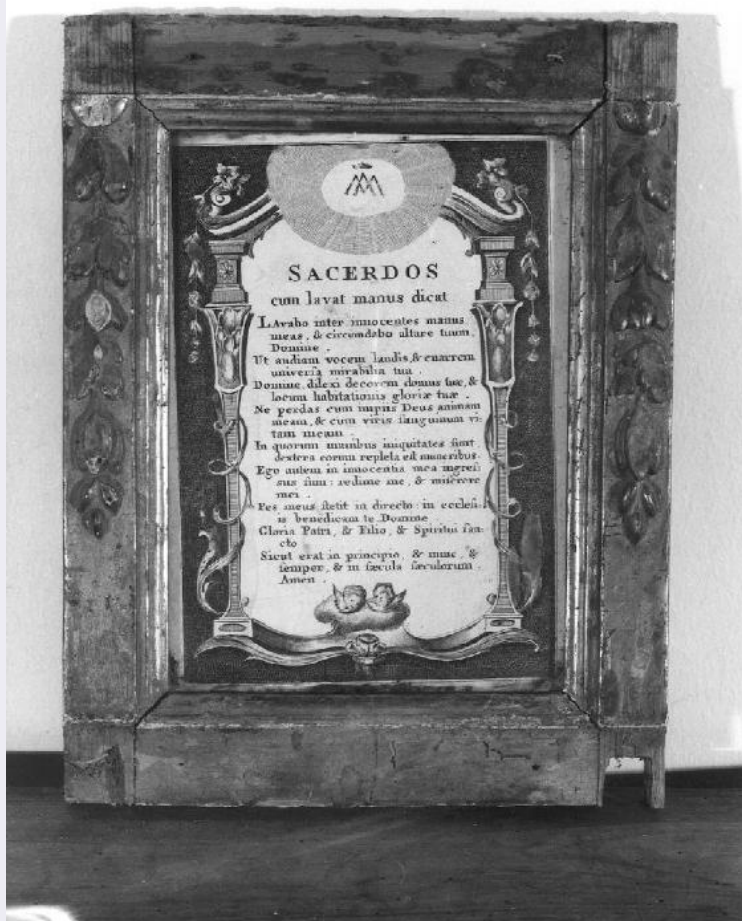 SACERDOS
cum lavat manus dicat
LAvabo inter innocentes manus
meas, & circumdabo altare tuum,
Domine.
Ut audiam vocem laudis, & enarrem
universa mirabilia tua.
Domine, dilexi decorem domus tuæ, &
locum habitationis gloriæ tuæ.
Ne perdas cum impiis Deus animam
meam, & cum viris sanguinum vi-
tam meam.
In quorum manibus iniquitates sunt
dextera eorum repleta est muneribus.
Ego autem in innocentia mea ingres-
sus sum: redime me, & miserere
mei.
Pes meus stetit in directo: in ecclesi-
is benedicam te Domine
Gloria Patri, & Filio, & Spiritui San-
cto
Sicut erat in principio, & nunc, &
semper, & in sæcula sæculorum.
Amen.